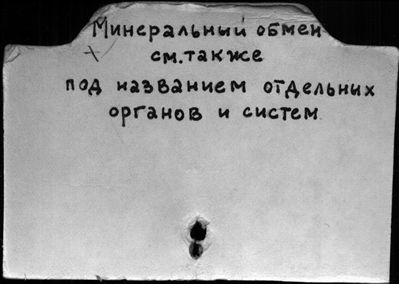 Минеральный обмен
см. также
под названием отдельных
органов и систем